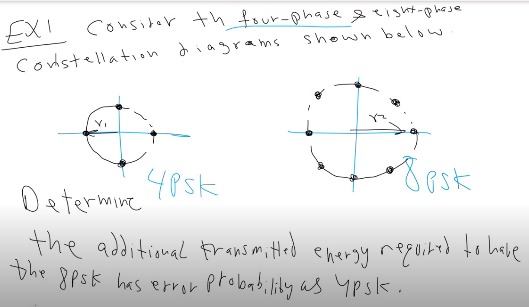 EX1 Consider th four-phase & eight-phase
Constellation diagrams shown below.
r1
r2
4PSK
8PSK
Determine
the additional transmitted energy required to have
the 8psk has error probability as 4psk.